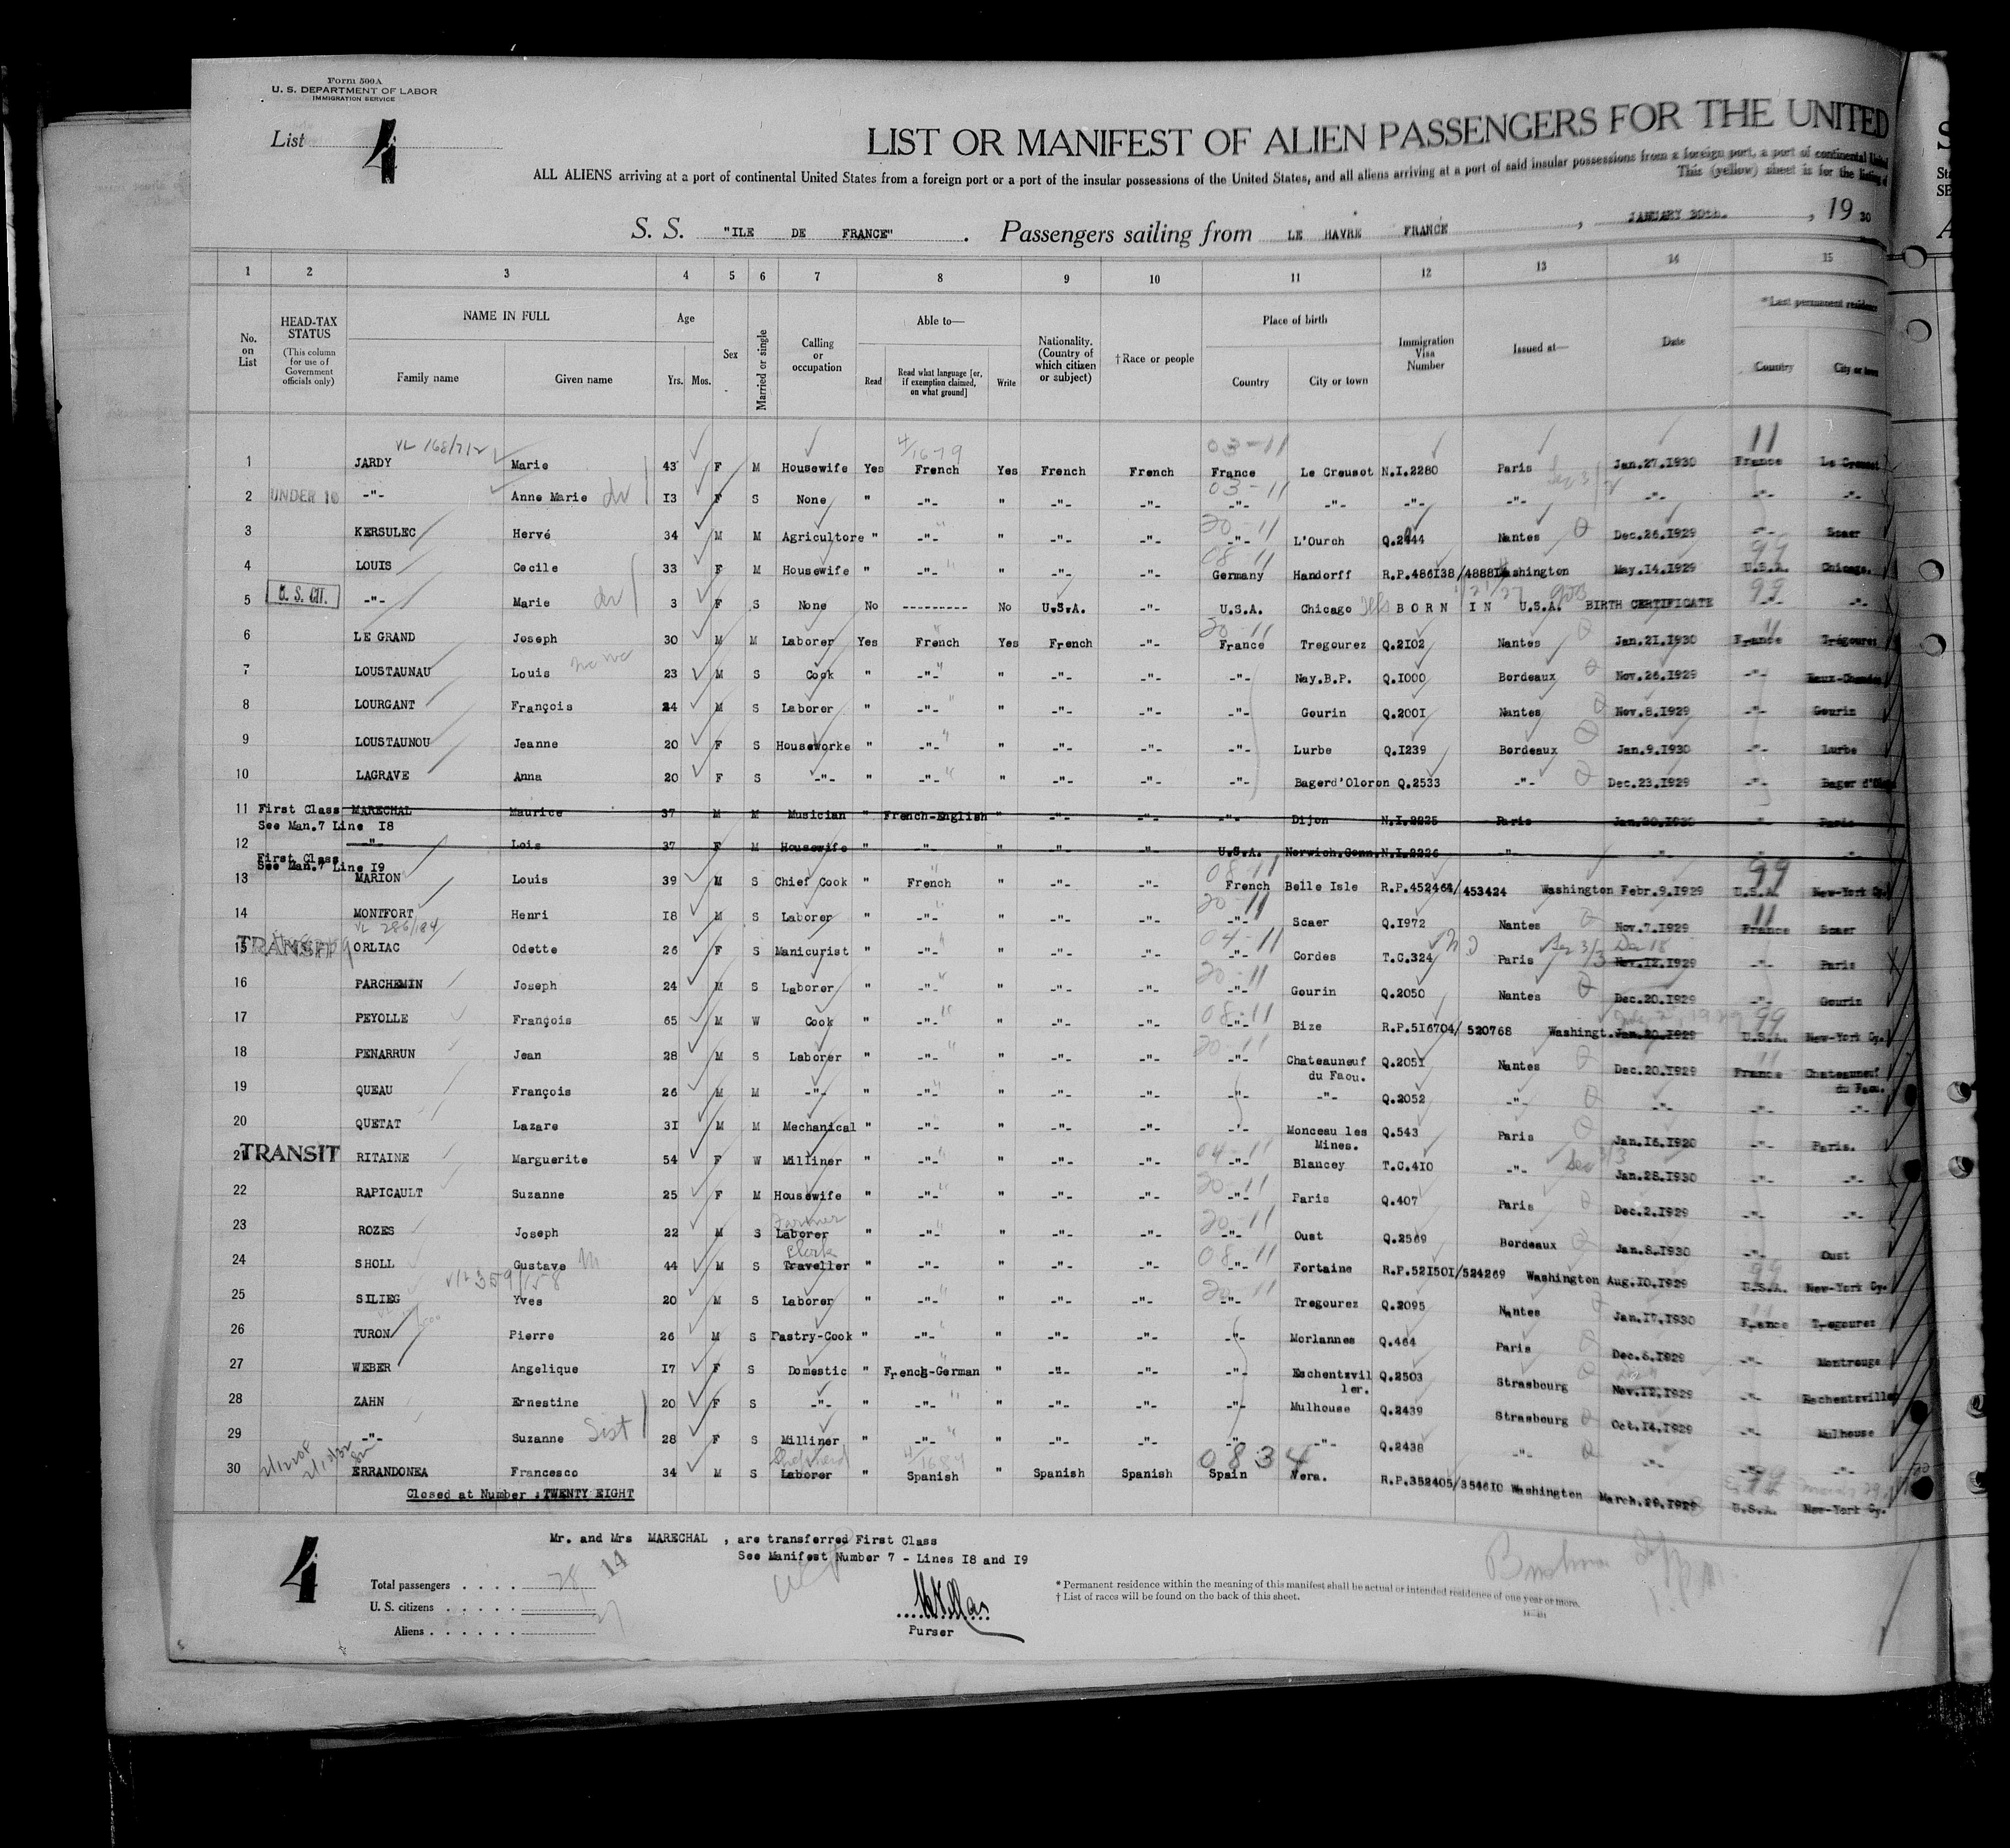 Form 500A
U. S. DEPARTMENT OF LABOR
IMMIGRATION SERVICE
List 4
LIST OR MANIFEST OF ALIEN PASSENGERS FOR THE UNITED
ALL ALIENS arriving at a port of continental United States from a foreign port or a port of the insular possessions of the United States, and all aliens arriving at a port of said insular possessions from a foreign port, a port of continental United
This (yellow) sheet is for the listing of
S. S. "ILE DE FRANCE". Passengers sailing from LE HAVRE FRANCE, JANUARY 30th., 19 30
1 2 3 4 5 6 7 8 9 10 11 12 13 14 15
No. on List
HEAD-TAX STATUS (This column for use of Government officials only)
NAME IN FULL
Family name Given name
Age
Yrs. Mos.
Sex
Married or single
Calling or occupation
Able to—
Read Read what language [or, if exemption claimed, on what ground] Write
Nationality. (Country of which citizen or subject)
†Race or people
Place of birth
Country City or town
Immigration Visa Number
Issued at—
Date
*Last permanent residence
Country City or town
VL 168/712 4/1679 03-11 11
1 JARDY Marie 43 F M Housewife Yes French Yes French French France Le Creusot N.I.2280 Paris Jan.27.1930 France Le Creusot
2 UNDER 16 -"- Anne Marie 13 F S None " -"- " -"- -"- 03-11 -"- -"- -"- -"- -"- -"- -"-
3 KERSULEC Hervé 34 M M Agriculture " -"- " -"- -"- 20-11 -"- L'Ourch Q.2444 Nantes Dec.26.1929 -"- Scaer
4 LOUIS Cecile 33 F M Housewife " -"- " -"- -"- 08-11 Germany Handorff R.P.486138/488814 Washington May.14.1929 99 U.S.A. Chicago.
5 U. S. CIT. -"- Marie 3 F S None No --------- No U.S.A. -"- U.S.A. Chicago BORN IN U.S.A. BIRTH CERTIFICATE 99 -"- -"-
6 LE GRAND Joseph 30 M M Laborer Yes French Yes French -"- 20-11 France Tregourez Q.2102 Nantes Jan.21.1930 11 France Trégourez
7 LOUSTAUNAU Louis 23 M S Cook " -"- " -"- -"- -"- Nay.B.P. Q.1000 Bordeaux Nov.26.1929 -"-
8 LOURGANT François 24 M S Laborer " -"- " -"- -"- -"- Gourin Q.2001 Nantes Nov.8.1929 -"- Gourin
9 LOUSTAUNOU Jeanne 20 F S Houseworke " -"- " -"- -"- -"- Lurbe Q.1239 Bordeaux Jan.9.1930 -"- Lurbe
10 LAGRAVE Anna 20 F S -"- " -"- " -"- -"- -"- Bagerd'Oloron Q.2533 -"- Dec.23.1929 -"- Bager
11 First Class MARECHAL Maurice 37 M M Musician " French-English " -"- -"- -"- Dijon N.I.2225 Paris Jan.20.1930 " Paris
See Man.7 Line 18
12 -"- Lois 37 F M Housewife " " " -"- -"- U.S.A. Norwich.Conn. N.I.2226 " " " "
First Class
See Man.7 Line 19
13 MARION Louis 39 M S Chief Cook " French " -"- -"- 08-11 French Belle Isle R.P.452464/453424 Washington Febr.9.1929 99 U.S.A. New-York Cy.
14 MONTFORT Henri 18 M S Laborer " -"- " -"- -"- 20-11 -"- Scaer Q.1972 Nantes Nov.7.1929 11 France Scaer
VL 286/184
15 TRANSIT ORLIAC Odette 26 F S Manicurist " -"- " -"- -"- 04-11 -"- Cordes T.C.324 Paris Dec 18 Nov.12.1929 -"- Paris
16 PARCHEMIN Joseph 24 M S Laborer " -"- " -"- -"- 20-11 -"- Gourin Q.2050 Nantes Dec.20.1929 -"- Gourin
17 PEYOLLE François 65 M W Cook " -"- " -"- -"- 08-11 -"- Bize R.P.516704/520768 Washingt. Jan.20.1929 99 U.S.A. New-York Cy.
18 PENARRUN Jean 28 M S Laborer " -"- " -"- -"- 20-11 -"- Chateauneuf du Faou. Q.2051 Nantes Dec.20.1929 11 France Chateauneuf du Faou.
19 QUEAU François 26 M M -"- " -"- " -"- -"- -"- -"- Q.2052 -"- -"- -"- -"-
20 QUETAT Lazare 31 M M Mechanical " -"- " -"- -"- -"- Monceau les Mines. Q.543 Paris Jan.16.1920 -"- Paris.
21 TRANSIT RITAINE Marguerite 54 F W Milliner " -"- " -"- -"- 04-11 -"- Blancey T.C.410 -"- Jan.28.1930 -"- -"-
22 RAPICAULT Suzanne 25 F M Housewife " -"- " -"- -"- 20-11 -"- Paris Q.407 Paris Dec.2.1929 -"- -"-
23 ROZES Joseph 22 M S Farmer Laborer " -"- " -"- -"- 20-11 -"- Oust Q.2569 Bordeaux Jan.8.1930 -"- Oust
24 SHOLL Gustave 44 M S Clerk Traveller " -"- " -"- -"- 08-11 -"- Fortaine R.P.521501/524269 Washington Aug.10.1929 99 U.S.A. New-York Cy.
VL 359/158
25 SILIEG Yves 20 M S Laborer " -"- " -"- -"- 20-11 -"- Tregourez Q.2095 Nantes Jan.17.1930 11 France Tregourez
26 TURON Pierre 26 M S Pastry-Cook " -"- " -"- -"- -"- Morlannes Q.464 Paris Dec.6.1929 -"- Montrouge
27 WEBER Angelique 17 F S Domestic " French-German " -"- -"- -"- Eschentzviller. Q.2503 Strasbourg Nov.12.1929 -"- Eschentzviller
28 ZAHN Ernestine 20 F S -"- " -"- " -"- -"- -"- Mulhouse Q.2439 Strasbourg Oct.14.1929 -"- Mulhouse
29 -"- Suzanne Sist 28 F S Milliner " -"- " -"- -"- -"- -"- Q.2438 -"- -"- -"- -"-
30 ERRANDONEA Francesco 34 M S Shepherd Laborer " 4/1684 Spanish " Spanish Spanish 0834 Spain Vera. R.P.352405/354610 Washington March.29.1929 99 U.S.A. New-York Cy.
Closed at Number : TWENTY EIGHT
4
Mr. and Mrs MARECHAL , are transferred First Class
See Manifest Number 7 - Lines 18 and 19
Total passengers . . . . 28 14
U. S. citizens . . . . . .
Aliens . . . . . . 27
Purser
* Permanent residence within the meaning of this manifest shall be actual or intended residence of one year or more.
† List of races will be found on the back of this sheet.